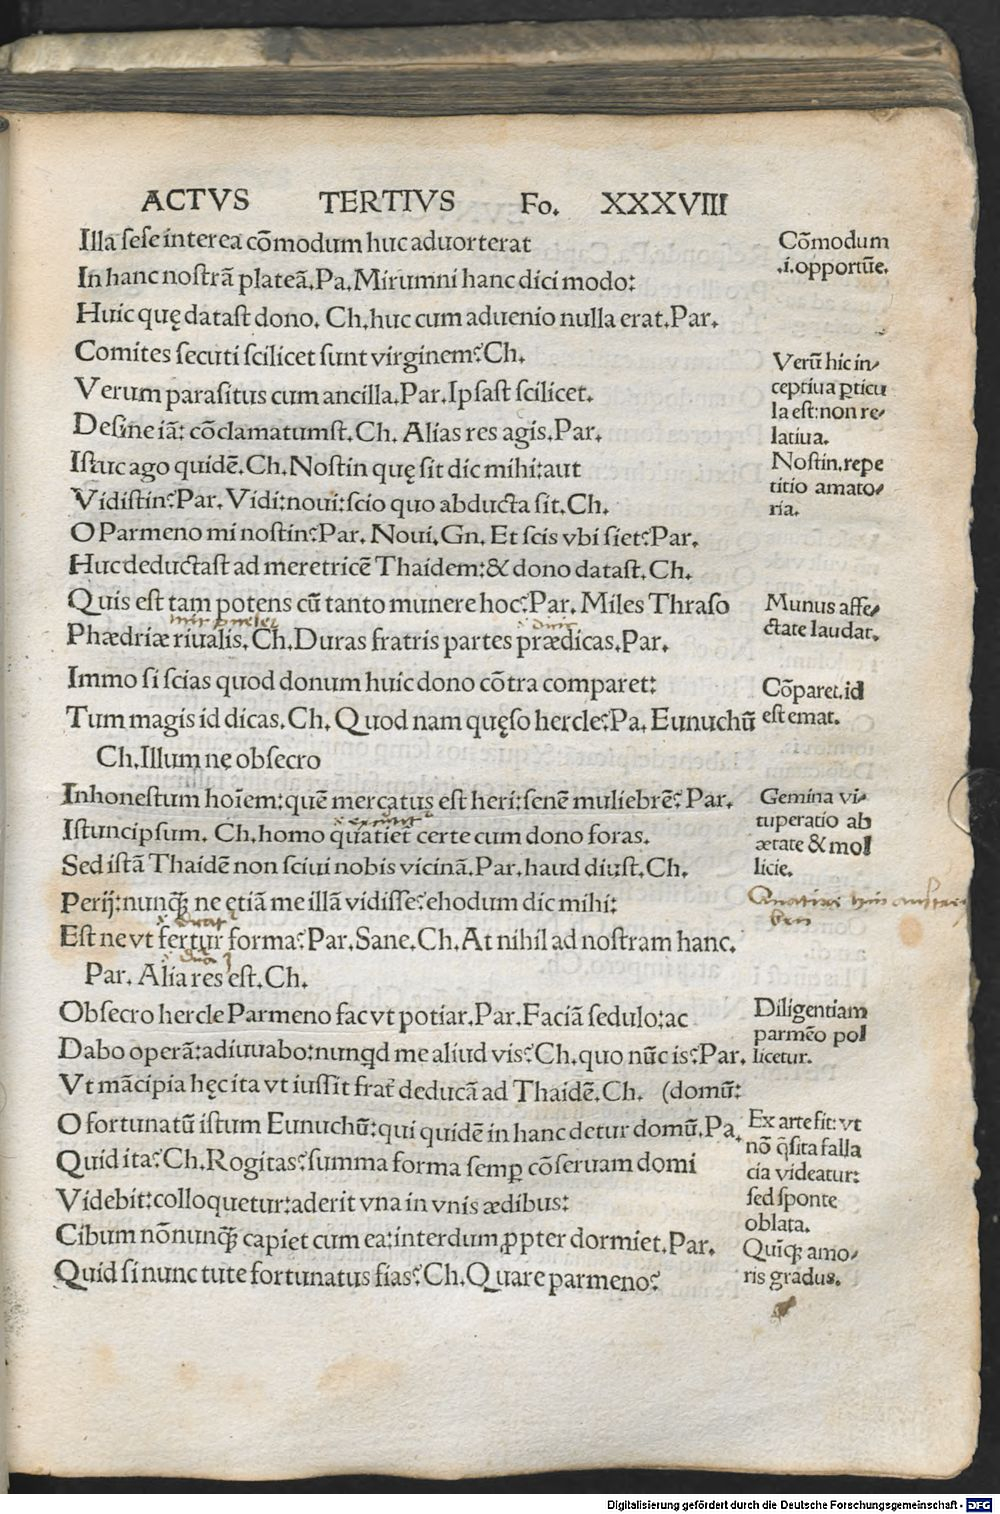 ACTVS TERTIVS Fo. XXXVIII
Illa seſe interea cōmodum huc aduorterat
In hanc noſtrā plateā. Pa. Mirumni hanc dici modo:
Huic quę dataſt dono. Ch. huc cum aduenio nulla erat. Par.
Comites ſecuti ſcilicet ſunt virginem? Ch.
Verum paraſitus cum ancilla. Par. Ipſaſt ſcilicet.
Deſine iā: cōclamatumſt. Ch. Alias res agis. Par.
Iſtuc ago quidē. Ch. Noſtin quę ſit dic mihi: aut
Vidiſtin? Par. Vidi: noui: ſcio quo abducta ſit. Ch.
O Parmeno mi noſtin? Par. Noui. Gn. Et ſcis vbi ſiet? Par.
Huc deductaſt ad meretricē Thaidem: & dono dataſt. Ch.
Quis eſt tam potens cū tanto munere hoc? Par. Miles Thraſo
Phædriæ riualis. Ch. Duras fratris partes prædicas. Par.
Immo ſi ſcias quod donum huic dono cōtra comparet:
Tum magis id dicas. Ch. Quod nam quęſo hercle? Pa. Eunuchū
Ch. Illum ne obſecro
Inhoneſtum hoīem: quē mercatus eſt heri: ſenē muliebrē? Par.
Iſtuncipſum. Ch. homo quatiet certe cum dono foras.
Sed iſtā Thaidē non ſciui nobis vicinā. Par. haud diuſt. Ch.
Perij: nunqꝫ ne etiā me illā vidiſſe? ehodum dic mihi:
Eſt ne vt fertur forma? Par. Sane. Ch. At nihil ad noſtram hanc.
Par. Alia res eſt. Ch.
Obſecro hercle Parmeno fac vt potiar. Par. Faciā ſedulo: ac
Dabo operā: adiuuabo: nunqd me aliud vis? Ch. quo nūc is? Par.
Vt mācipia hęc ita vt iuſſit frat̄ deducā ad Thaidē. Ch. (domū:
O fortunatū iſtum Eunuchū: qui quidē in hanc detur domū. Pa.
Quid ita? Ch. Rogitas? ſumma forma ſemꝑ cōſeruam domi
Videbit: colloquetur: aderit vna in vnis ædibus:
Cibum nōnunqꝫ capiet cum ea: interdum ꝓpter dormiet. Par.
Quid ſi nunc tute fortunatus fias? Ch. Quare parmeno?
Cōmodum
.i. opportūe.
Verū hic in/
ceptiua ꝑticu
la eſt: non re/
latiua.
Noſtin. repe
titio amato/
ria.
Munus affe/
ctate laudat.
Cōparet. id
eſt emat.
Gemina vi/
tuperatio ab
ætate & mol
licie.
Diligentiam
parmēo pol
licetur.
Ex arte fit: vt
nō q̄ſita falla
cia videatur:
ſed ſponte
oblata.
Quīqꝫ amo/
ris gradus.